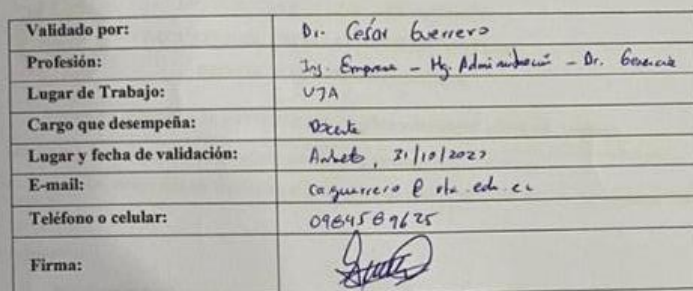 Validado por: Dr. César Guerrero
Profesión: Ing. Empresas - Mg. Administración - Dr. Gerencia
Lugar de Trabajo: UTA
Cargo que desempeña: Docente
Lugar y fecha de validación: Ambato, 31/10/2022
E-mail: caguerrero@uta.edu.ec
Teléfono o celular:
Firma: